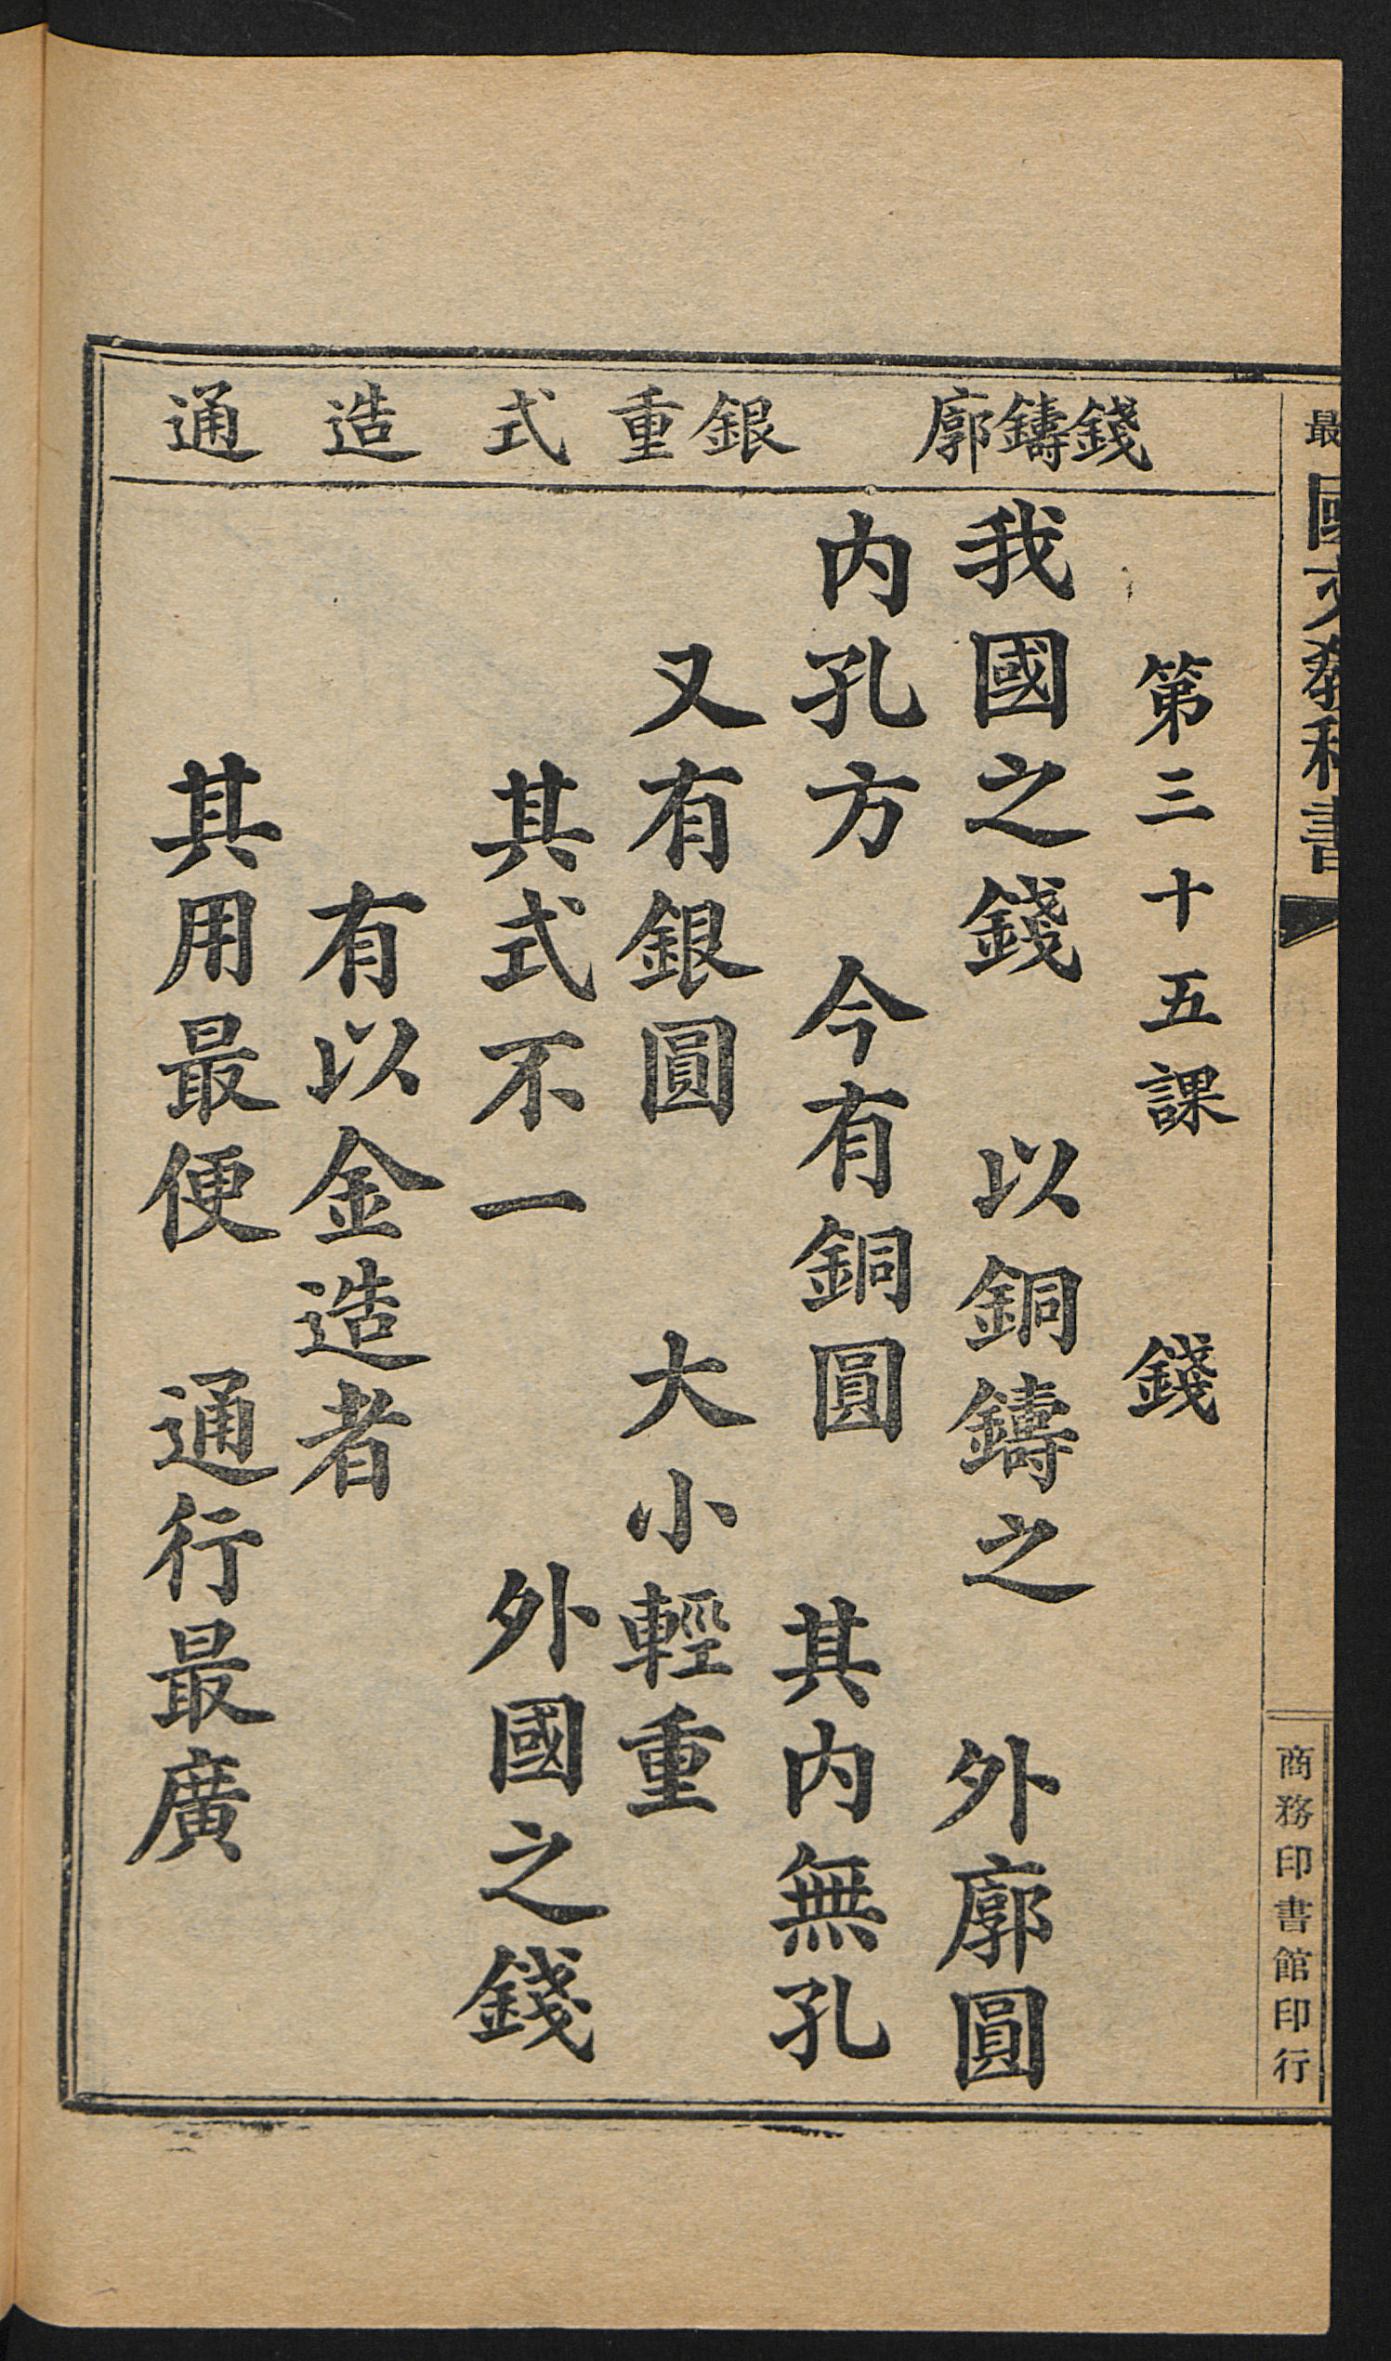 最國文教科書
商務印書館印行
錢鑄廓 銀重 式 造 通
第三十五課 錢
我國之錢 以銅鑄之 外廓圓
內孔方 今有銅圓 其內無孔
又有銀圓 大小輕重
其式不一 外國之錢
有以金造者
其用最便 通行最廣